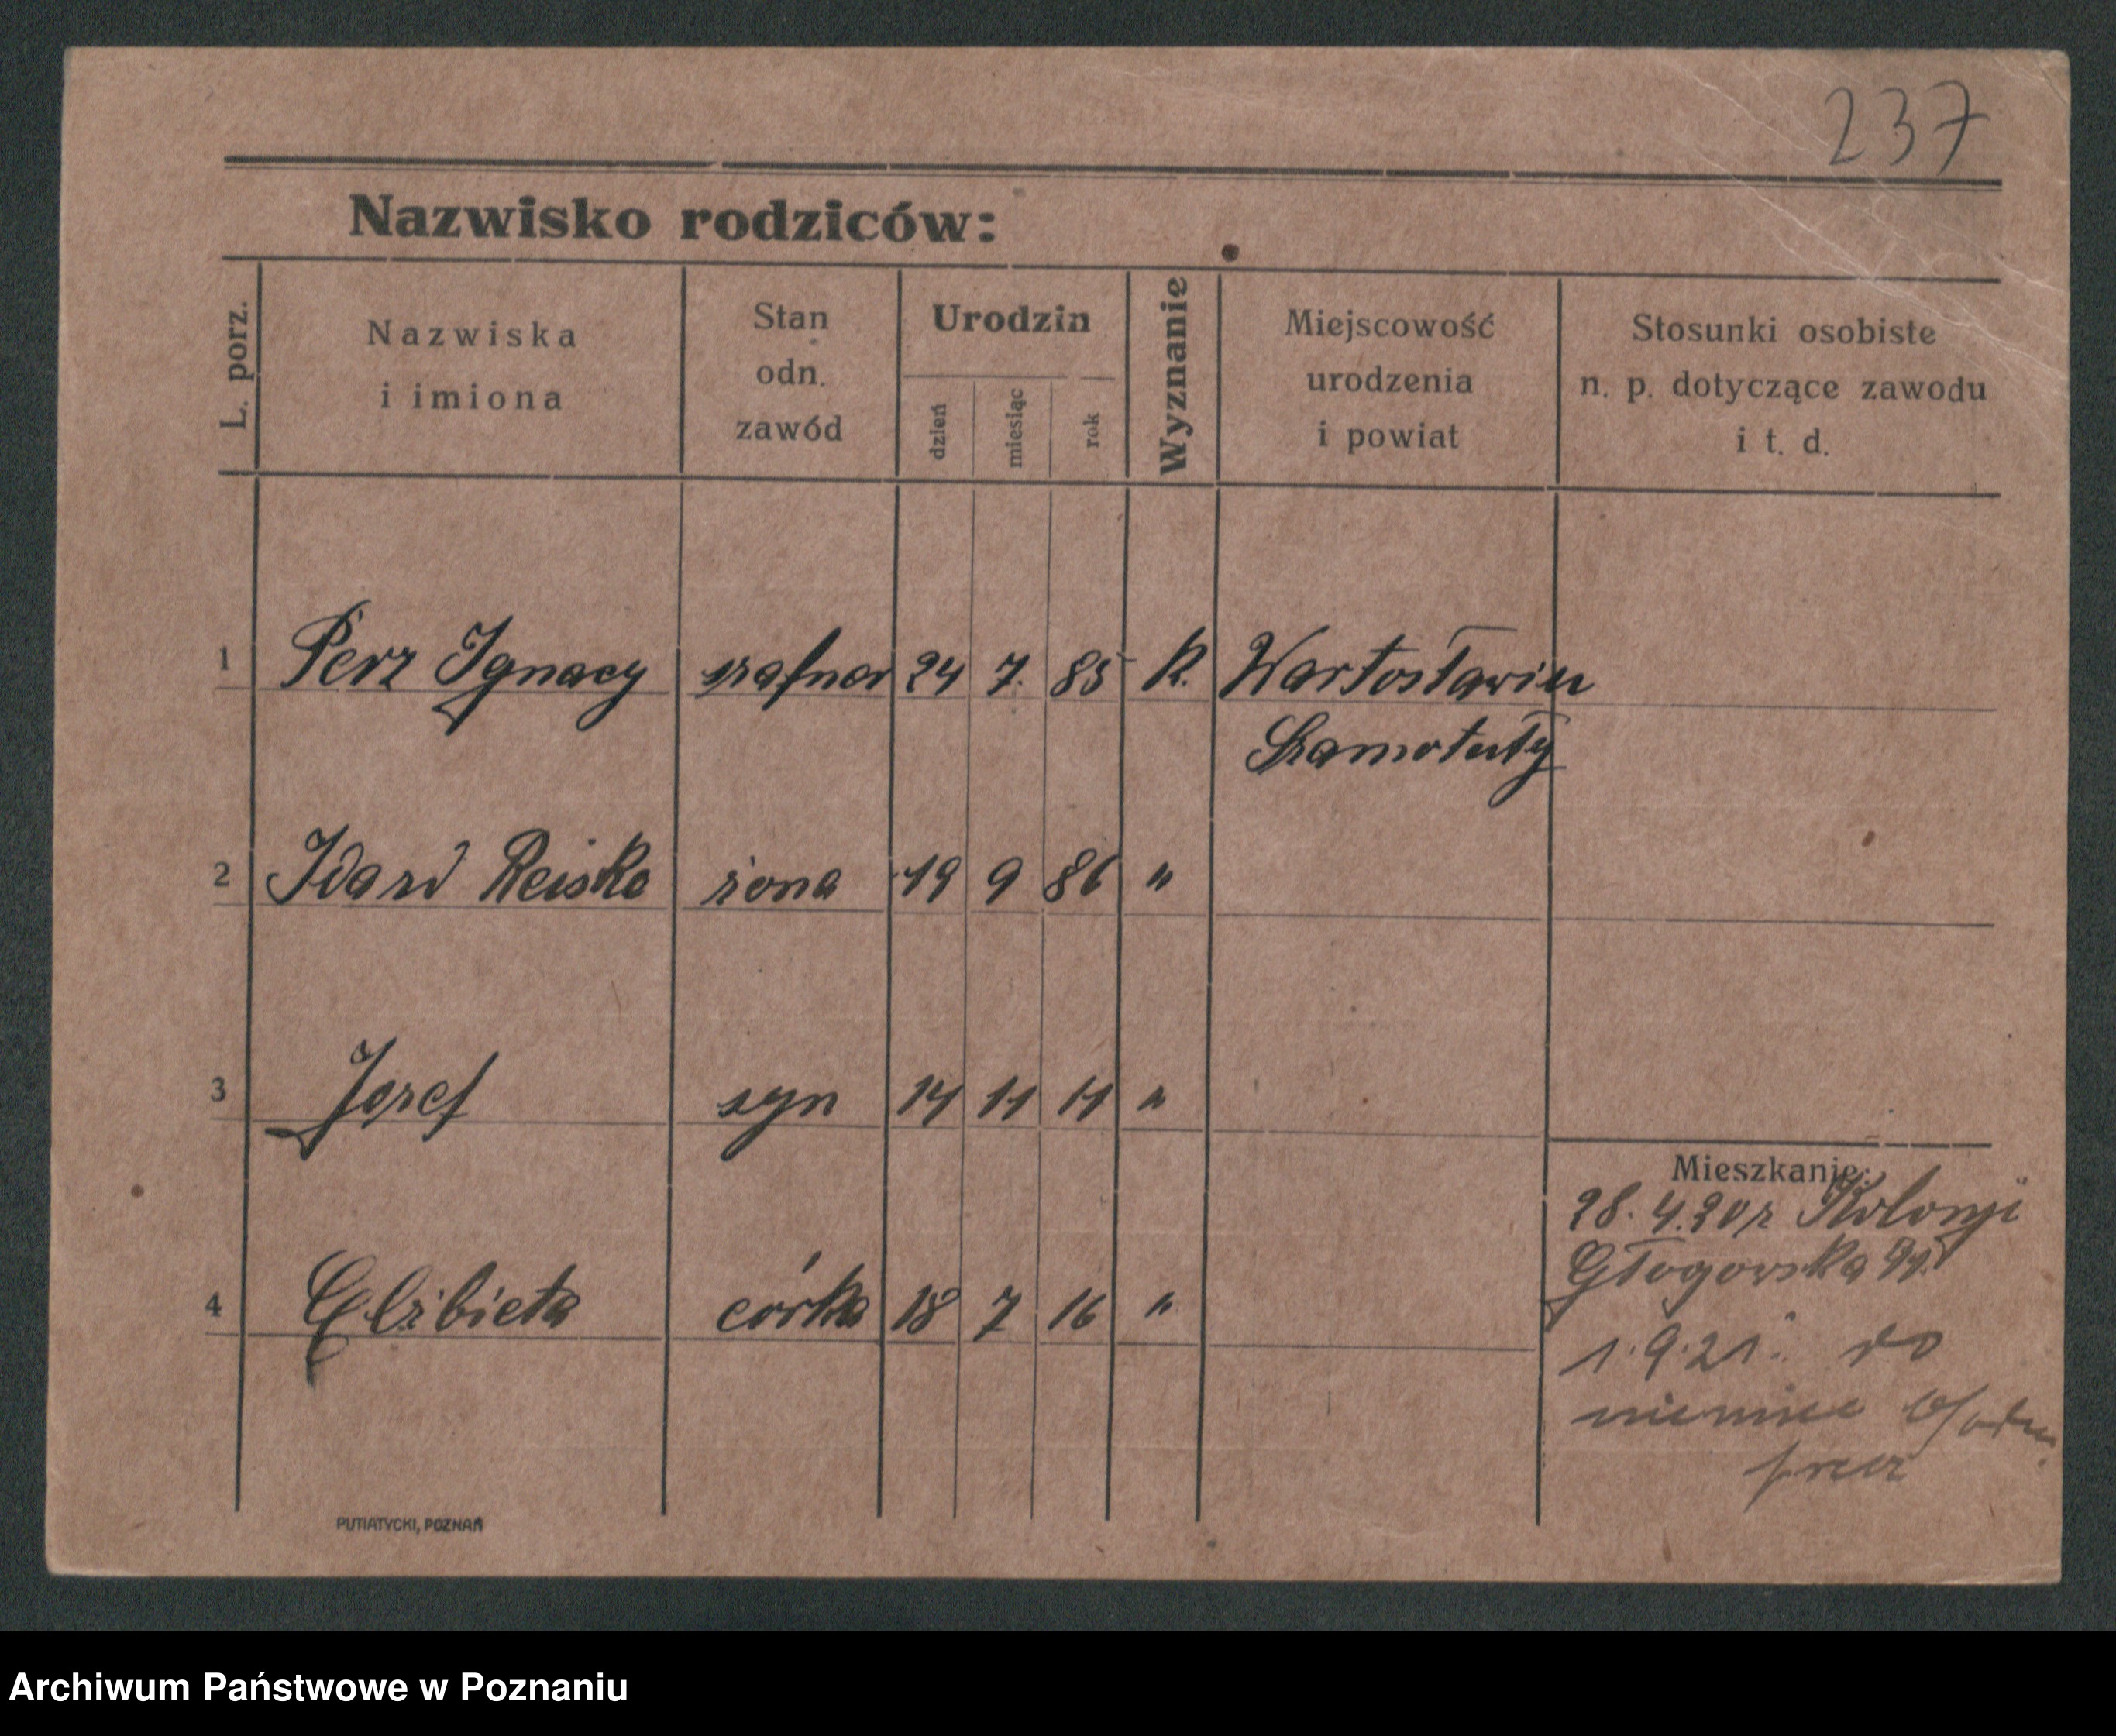 237
Nazwisko rodziców:
L. porz.
Nazwiska
i imiona
Stan
odn.
zawód
Urodzin
dzień
miesiąc
rok
Wyznanie
Miejscowość
urodzenia
i powiat
Stosunki osobiste
n. p. dotyczące zawodu
i t. d.
1 Perz Ignacy szafner 24 7. 85 k. Wartosławiu
Szamotuły
2 Reiske żona 19 9 86 "
3 Jozef syn 14 11 11 "
4 Elżbieta córka 18 7 16 "
Mieszkanie:
28.4.20 r Kolonji
Głogowska
1.9.21. do
niemiec
PUTIATYCKI, POZNAŃ
Archiwum Państwowe w Poznaniu